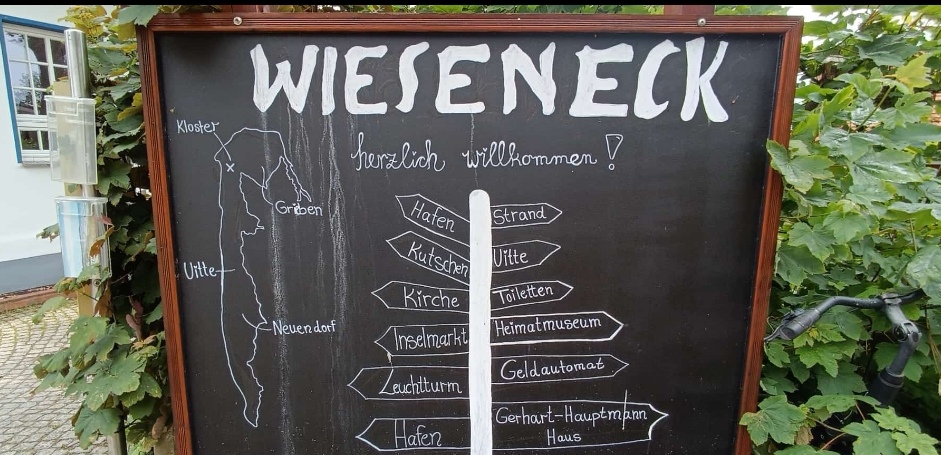 WIESENECK
herzlich willkommen!
Kloster
Grieben
Vitte
Neuendorf
Hafen
Strand
Kutschen
Vitte
Kirche
Toiletten
Inselmarkt
Heimatmuseum
Leuchtturm
Geldautomat
Hafen
Gerhart-Hauptmann
Haus